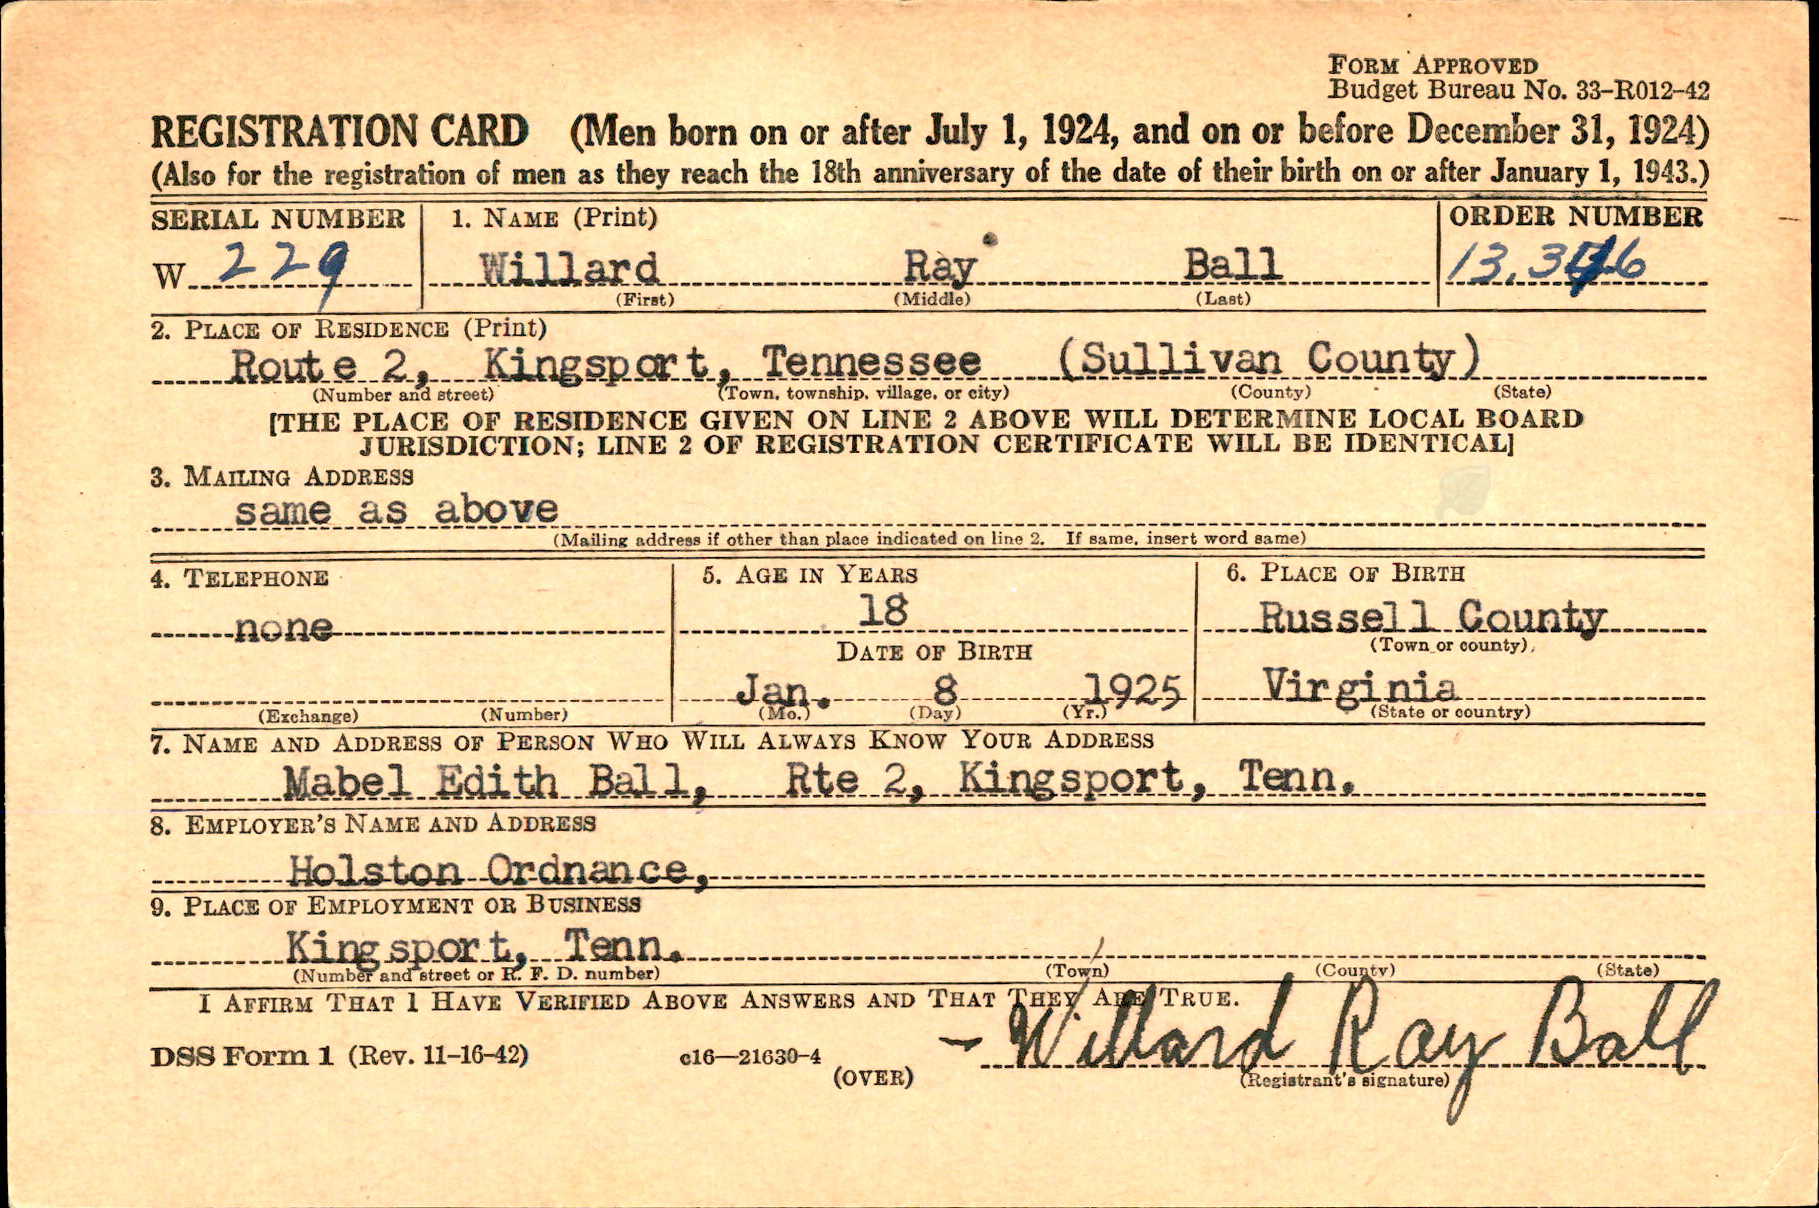 FORM APPROVED
Budget Bureau No. 33-R012-42
REGISTRATION CARD (Men born on or after July 1, 1924, and on or before December 31, 1924)
(Also for the registration of men as they reach the 18th anniversary of the date of their birth on or after January 1, 1943.)
SERIAL NUMBER 1. NAME (Print) ORDER NUMBER
W 229 Willard Ray Ball
(First) (Middle) (Last)
2. PLACE OF RESIDENCE (Print)
Route 2, Kingsport, Tennessee (Sullivan County)
(Number and street) (Town, township, village, or city) (County) (State)
[THE PLACE OF RESIDENCE GIVEN ON LINE 2 ABOVE WILL DETERMINE LOCAL BOARD
JURISDICTION; LINE 2 OF REGISTRATION CERTIFICATE WILL BE IDENTICAL]
3. MAILING ADDRESS
same as above
(Mailing address if other than place indicated on line 2. If same, insert word same)
4. TELEPHONE 5. AGE IN YEARS 6. PLACE OF BIRTH
none 18 Russell County
(Town or county)
DATE OF BIRTH
Jan. 8 1925 Virginia
(Exchange) (Number) (Mo.) (Day) (Yr.) (State or country)
7. NAME AND ADDRESS OF PERSON WHO WILL ALWAYS KNOW YOUR ADDRESS
Mabel Edith Ball, Rte 2, Kingsport, Tenn.
8. EMPLOYER'S NAME AND ADDRESS
Holston Ordnance,
9. PLACE OF EMPLOYMENT OR BUSINESS
Kingsport, Tenn.
(Number and street or R. F. D. number) (Town) (County) (State)
I AFFIRM THAT I HAVE VERIFIED ABOVE ANSWERS AND THAT THEY ARE TRUE.
DSS Form 1 (Rev. 11-16-42) c16—21630-4 Willard Ray Ball
(OVER) (Registrant's signature)